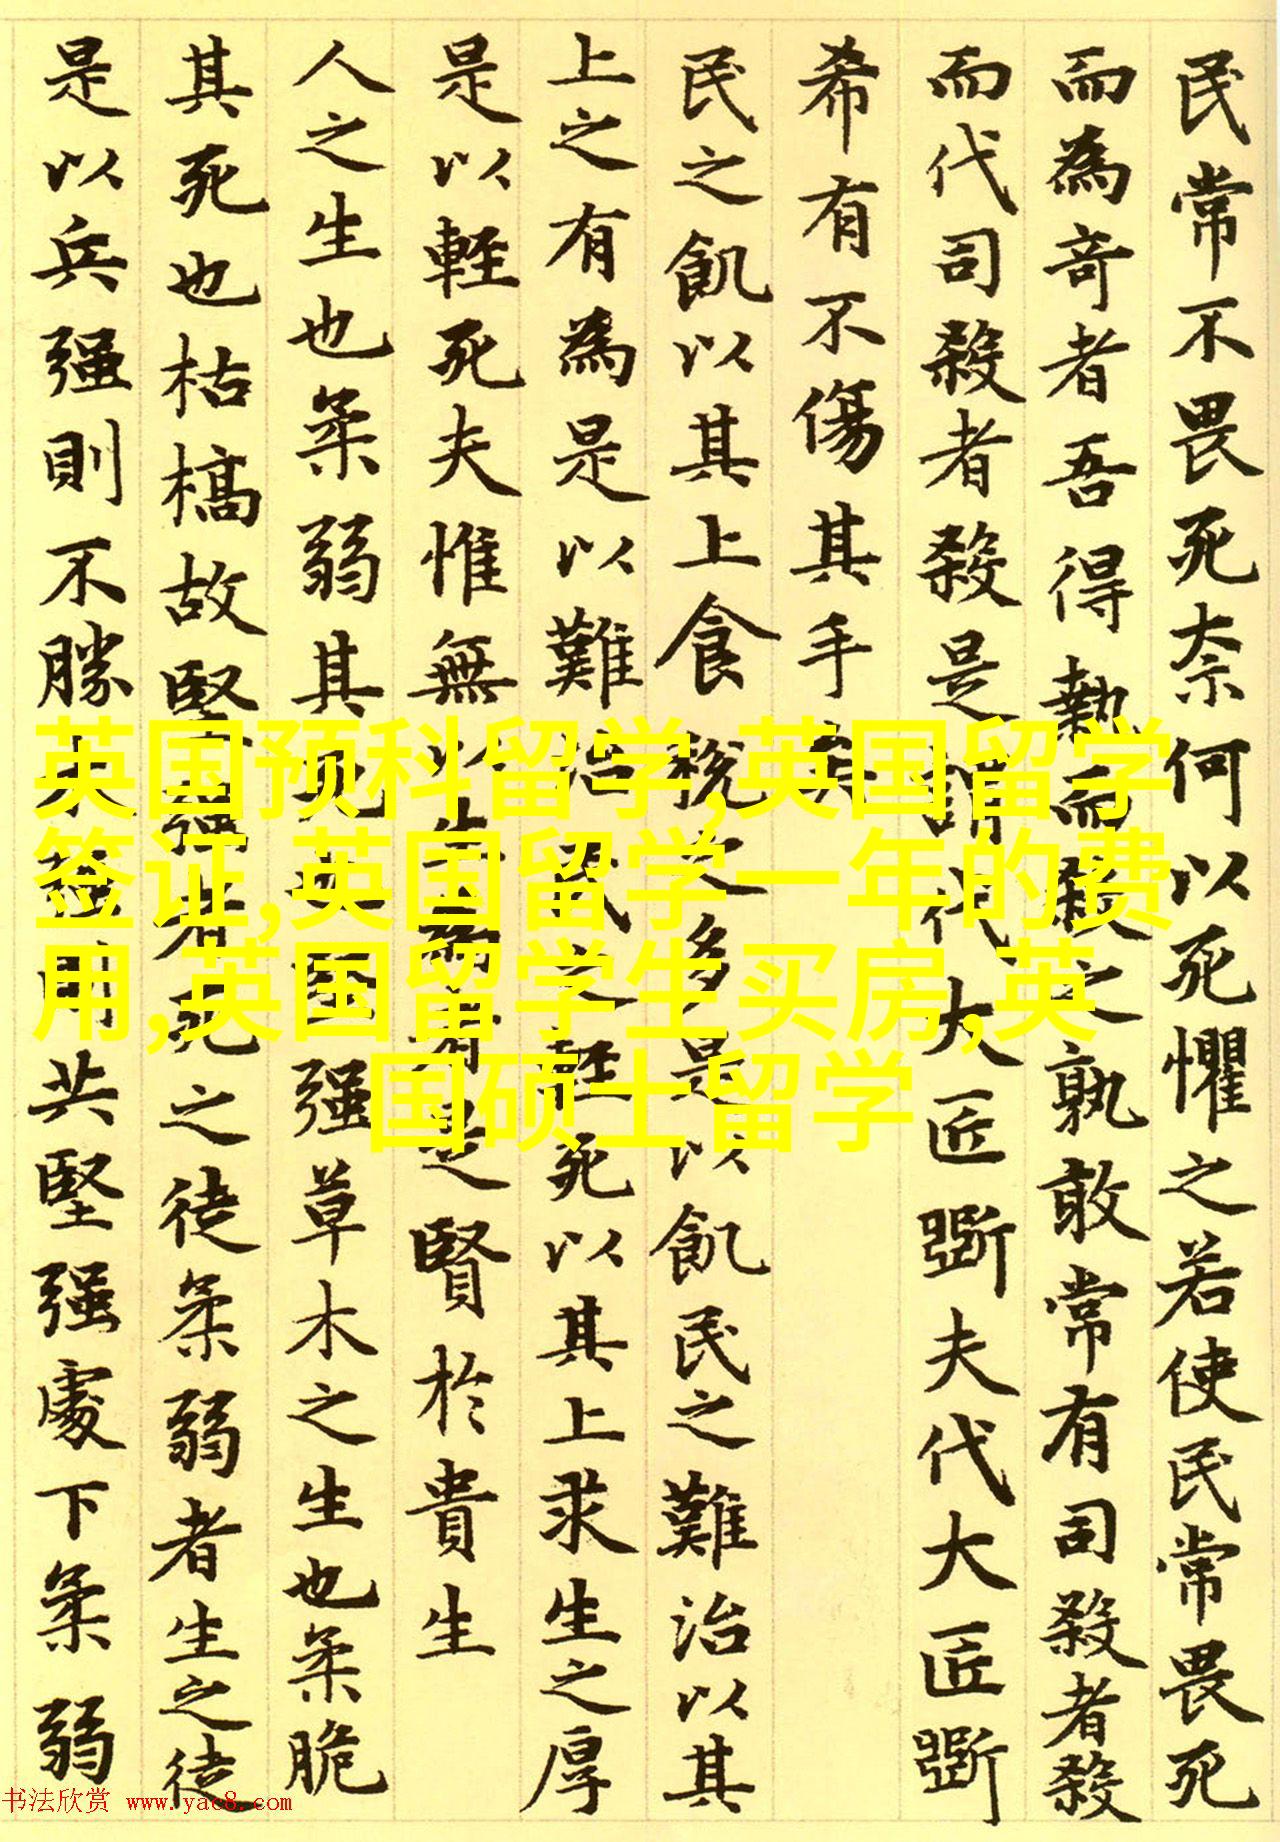 民常不畏死奈何以死懼之若使民常畏死
而為奇者吾得執而殺之孰敢常有司殺者殺
而代司殺者殺是謂代大匠斲夫代大匠斲
希有不傷其手矣
民之飢以其上食稅之多是以飢民之難治以其
上之有為是以難治民之輕死以其上求生之厚
是以輕死夫惟無以生為者是賢於貴生
人之生也柔弱其死也堅强草木之生也柔脆
其死也枯槁故堅强者死之徒柔弱者生之徒
是以兵强則不勝木强則共堅强處下柔弱
英国预科留学,英国留学
签证,英国留学一年的费
用,英国留学生买房,英
国硕士留学
书法欣赏 www.yac8.com